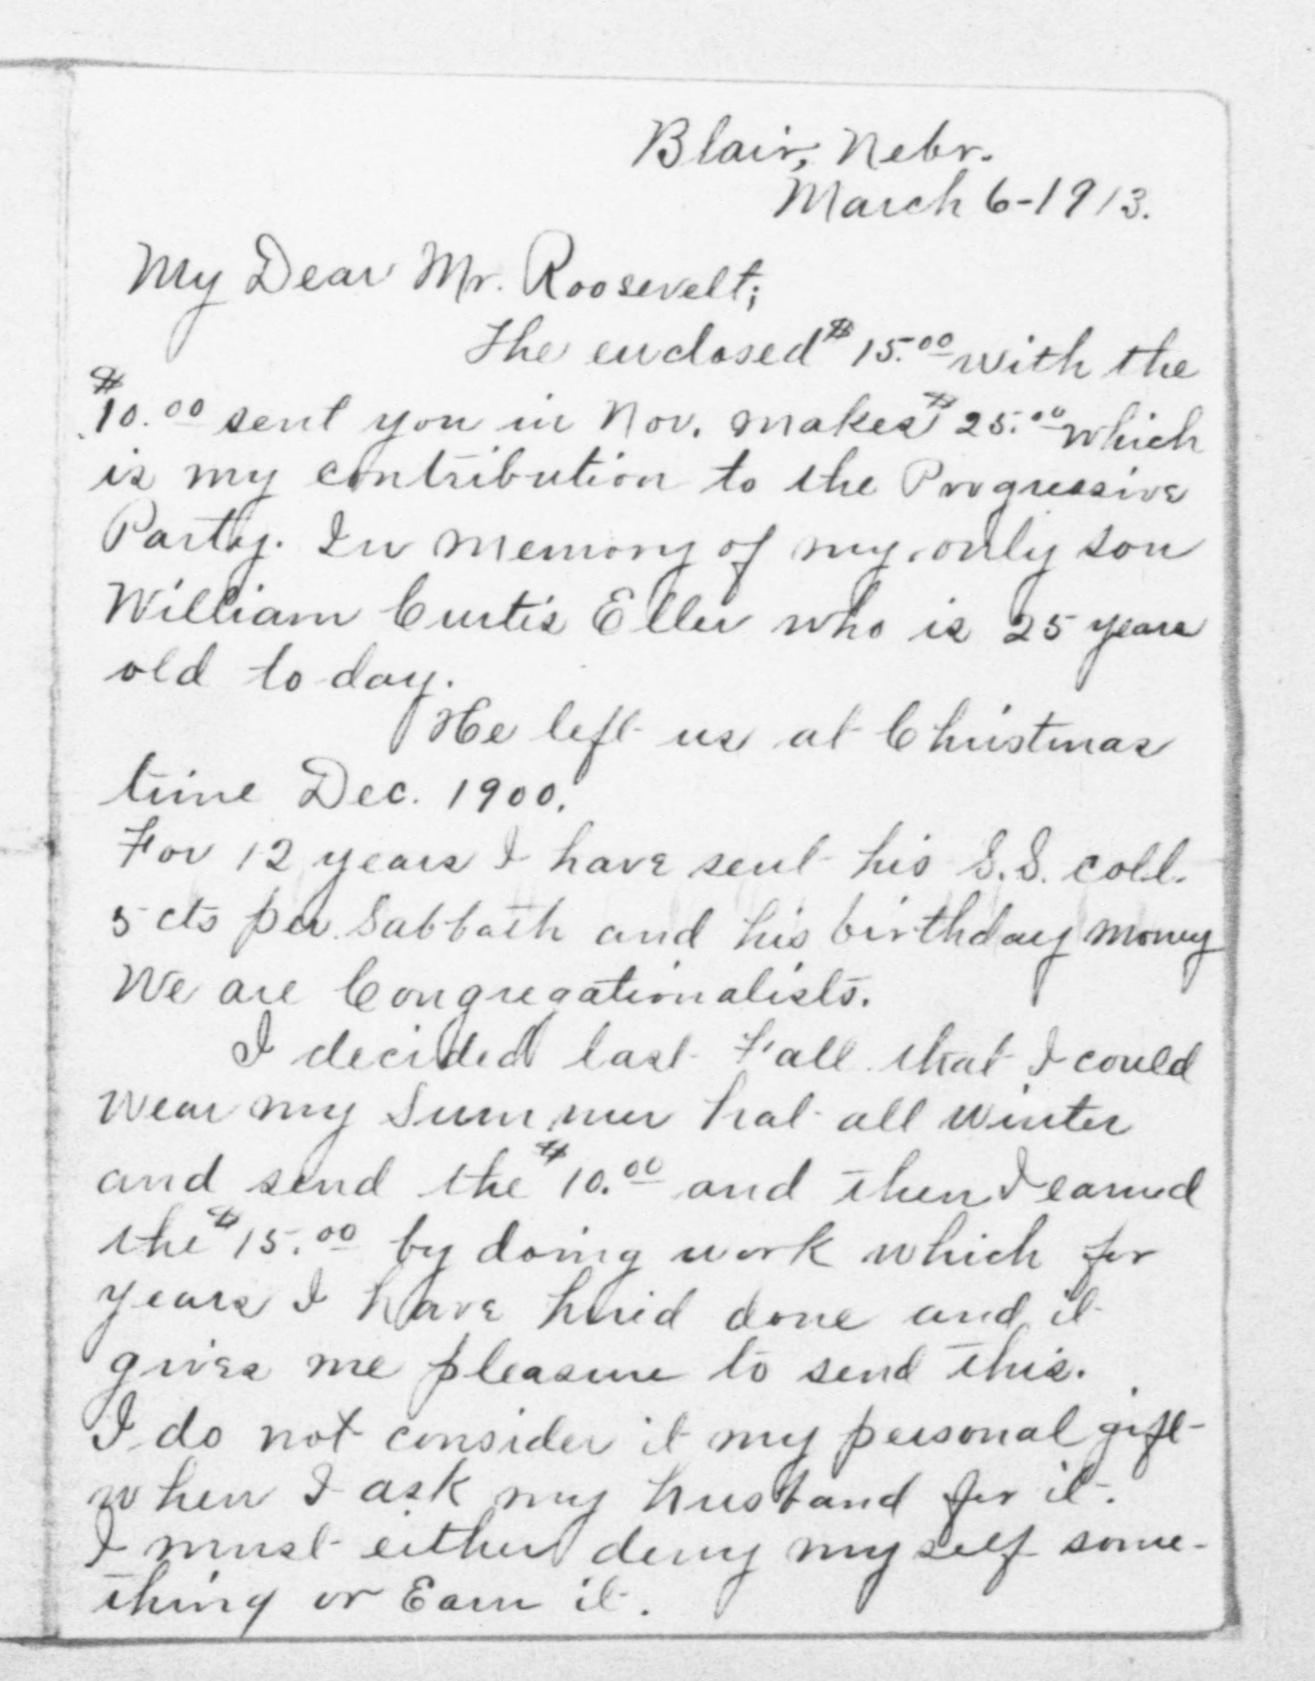 Blair, Nebr.
March 6-1913.
My Dear Mr. Roosevelt;
The enclosed $15.00 with the
$10.00 sent you in Nov. makes $25.00 which
is my contribution to the Progressive
Party. In memory of my only son
William Curtis Eller who is 25 years
old to-day.
He left us at Christmas
time Dec. 1900.
For 12 years I have sent his S.S. coll.
5 cts per Sabbath and his birthday money
We are Congregationalists.
I decided last Fall that I could
wear my Summer hat all winter
and send the $10.00 and then I earned
the $15.00 by doing work which for
years I have hired done and it
gives me pleasure to send this.
I do not consider it my personal gift
when I ask my husband for it.
I must either deny myself some-
thing or Earn it.